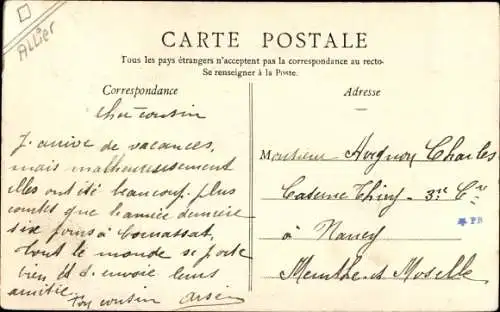 Allier
CARTE POSTALE
Tous les pays étrangers n'acceptent pas la correspondance au recto-
Se renseigner à la Poste.
Correspondance
Adresse
Cher cousin
J'arrive de vacances,
mais malheureusement
elles ont été beaucoup plus
courtes que l'année dernière
six jours à
tout le monde se porte
bien et t'envoie leurs
amitiés
Ton cousin
Monsieur Charles
Caserne Thiry 3e Cie
à Nancy
Meurthe et Moselle
PB